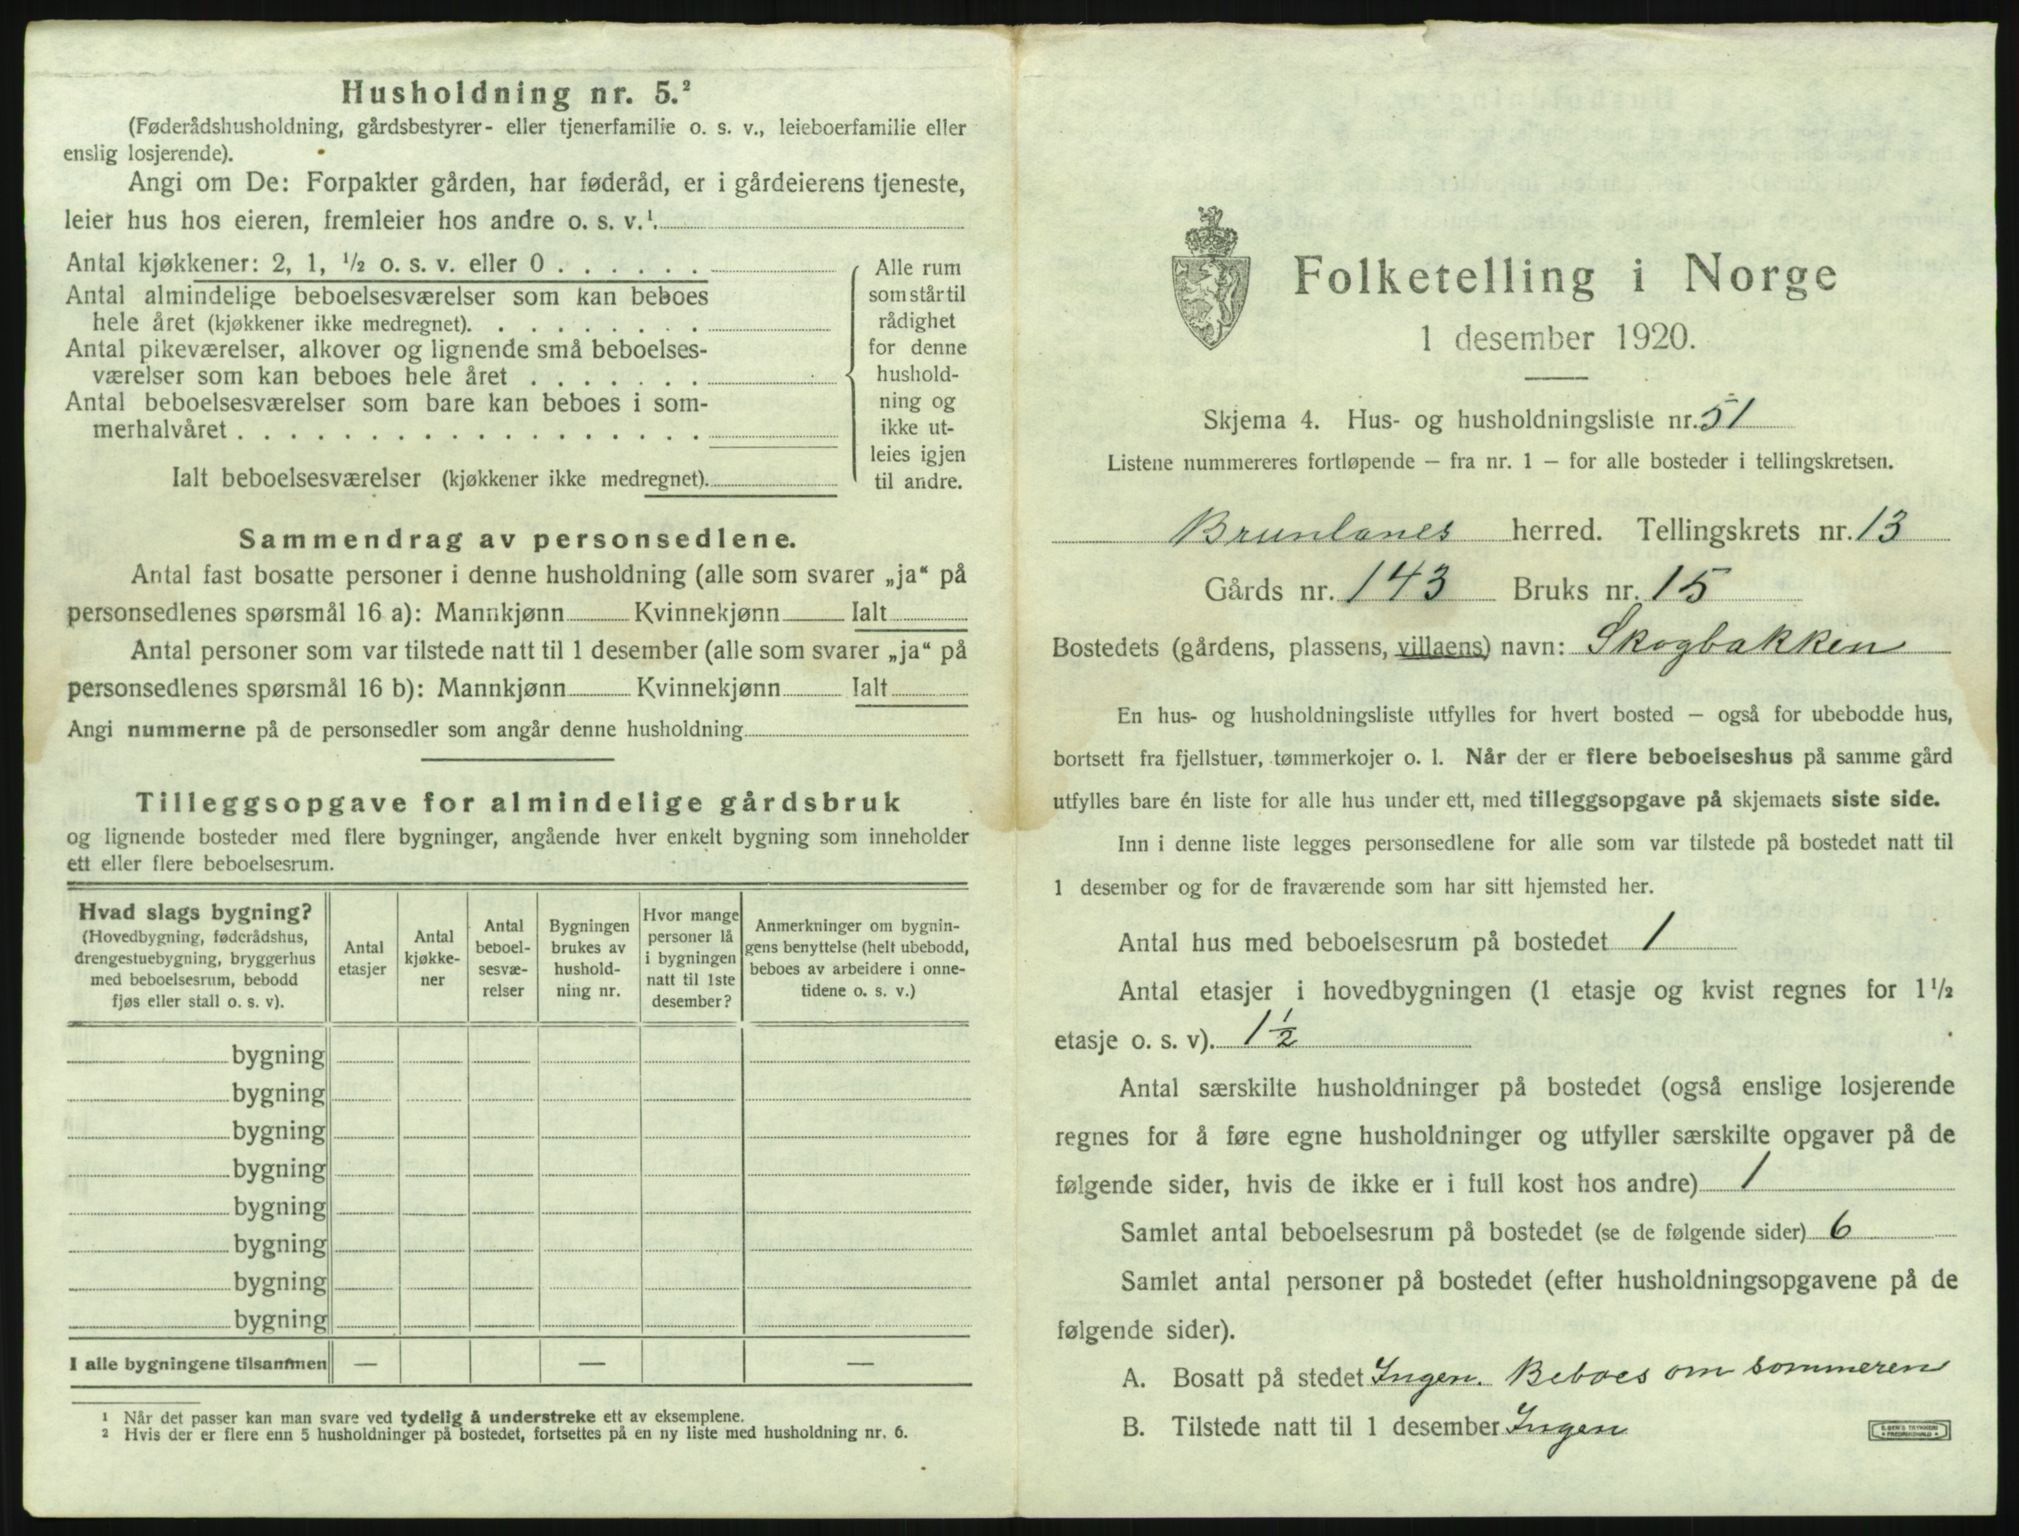 Husholdning nr. 5.²
(Føderådshusholdning, gårdsbestyrer- eller tjenerfamilie o. s. v., leieboerfamilie eller
enslig losjerende).
Angi om De: Forpakter gården, har føderåd, er i gårdeierens tjeneste,
leier hus hos eieren, fremleier hos andre o. s. v.¹.
Antal kjøkkener: 2, 1, ½ o. s. v. eller 0 . . . . . .
Antal almindelige beboelsesværelser som kan beboes
hele året (kjøkkener ikke medregnet). . . . . . . . .
Antal pikeværelser, alkover og lignende små beboelses-
værelser som kan beboes hele året . . . . . . .
Antal beboelsesværelser som bare kan beboes i som-
merhalvåret . . . . . . . . . . . . . . . . . .
Ialt beboelsesværelser (kjøkkener ikke medregnet).
Alle rum
som står til
rådighet
for denne
hushold-
ning og
ikke ut-
leies igjen
til andre.
Sammendrag av personsedlene.
Antal fast bosatte personer i denne husholdning (alle som svarer „ja“ på
personsedlenes spørsmål 16 a): Mannkjønn Kvinnekjønn Ialt
Antal personer som var tilstede natt til 1 desember (alle som svarer „ja“ på
personsedlenes spørsmål 16 b): Mannkjønn Kvinnekjønn Ialt
Angi nummerne på de personsedler som angår denne husholdning
Tilleggsopgave for almindelige gårdsbruk
og lignende bosteder med flere bygninger, angående hver enkelt bygning som inneholder
ett eller flere beboelsesrum.
Hvad slags bygning?
(Hovedbygning, føderådshus,
drengestuebygning, bryggerhus
med beboelsesrum, bebodd
fjøs eller stall o. s. v).
Antal
etasjer
Antal
kjøkke-
ner
Antal
beboel-
sesvæ-
relser
Bygningen
brukes av
hushold-
ning nr.
Hvor mange
personer lå
i bygningen
natt til 1ste
desember?
Anmerkninger om bygnin-
gens benyttelse (helt ubebodd,
beboes av arbeidere i onne-
tidene o. s. v.)
bygning
bygning
bygning
bygning
bygning
bygning
bygning
bygning
I alle bygningene tilsammen — — —
¹ Når det passer kan man svare ved tydelig å understreke ett av eksemplene.
² Hvis der er flere enn 5 husholdninger på bostedet, fortsettes på en ny liste med husholdning nr. 6.
Folketelling i Norge
1 desember 1920.
Skjema 4. Hus- og husholdningsliste nr. 51
Listene nummereres fortløpende – fra nr. 1 – for alle bosteder i tellingskretsen.
Brunlanes herred. Tellingskrets nr. 13
Gårds nr. 143 Bruks nr. 15
Bostedets (gårdens, plassens, villaens) navn: Skogbakken
En hus- og husholdningsliste utfylles for hvert bosted – også for ubebodde hus,
bortsett fra fjellstuer, tømmerkojer o. l. Når der er flere beboelseshus på samme gård
utfylles bare én liste for alle hus under ett, med tilleggsopgave på skjemaets siste side.
Inn i denne liste legges personsedlene for alle som var tilstede på bostedet natt til
1 desember og for de fraværende som har sitt hjemsted her.
Antal hus med beboelsesrum på bostedet 1
Antal etasjer i hovedbygningen (1 etasje og kvist regnes for 1½
etasje o. s. v). 1½
Antal særskilte husholdninger på bostedet (også enslige losjerende
regnes for å føre egne husholdninger og utfyller særskilte opgaver på de
følgende sider, hvis de ikke er i full kost hos andre) 1
Samlet antal beboelsesrum på bostedet (se de følgende sider) 6
Samlet antal personer på bostedet (efter husholdningsopgavene på de
følgende sider).
A. Bosatt på stedet Ingen. Beboes om sommeren
B. Tilstede natt til 1 desember Ingen